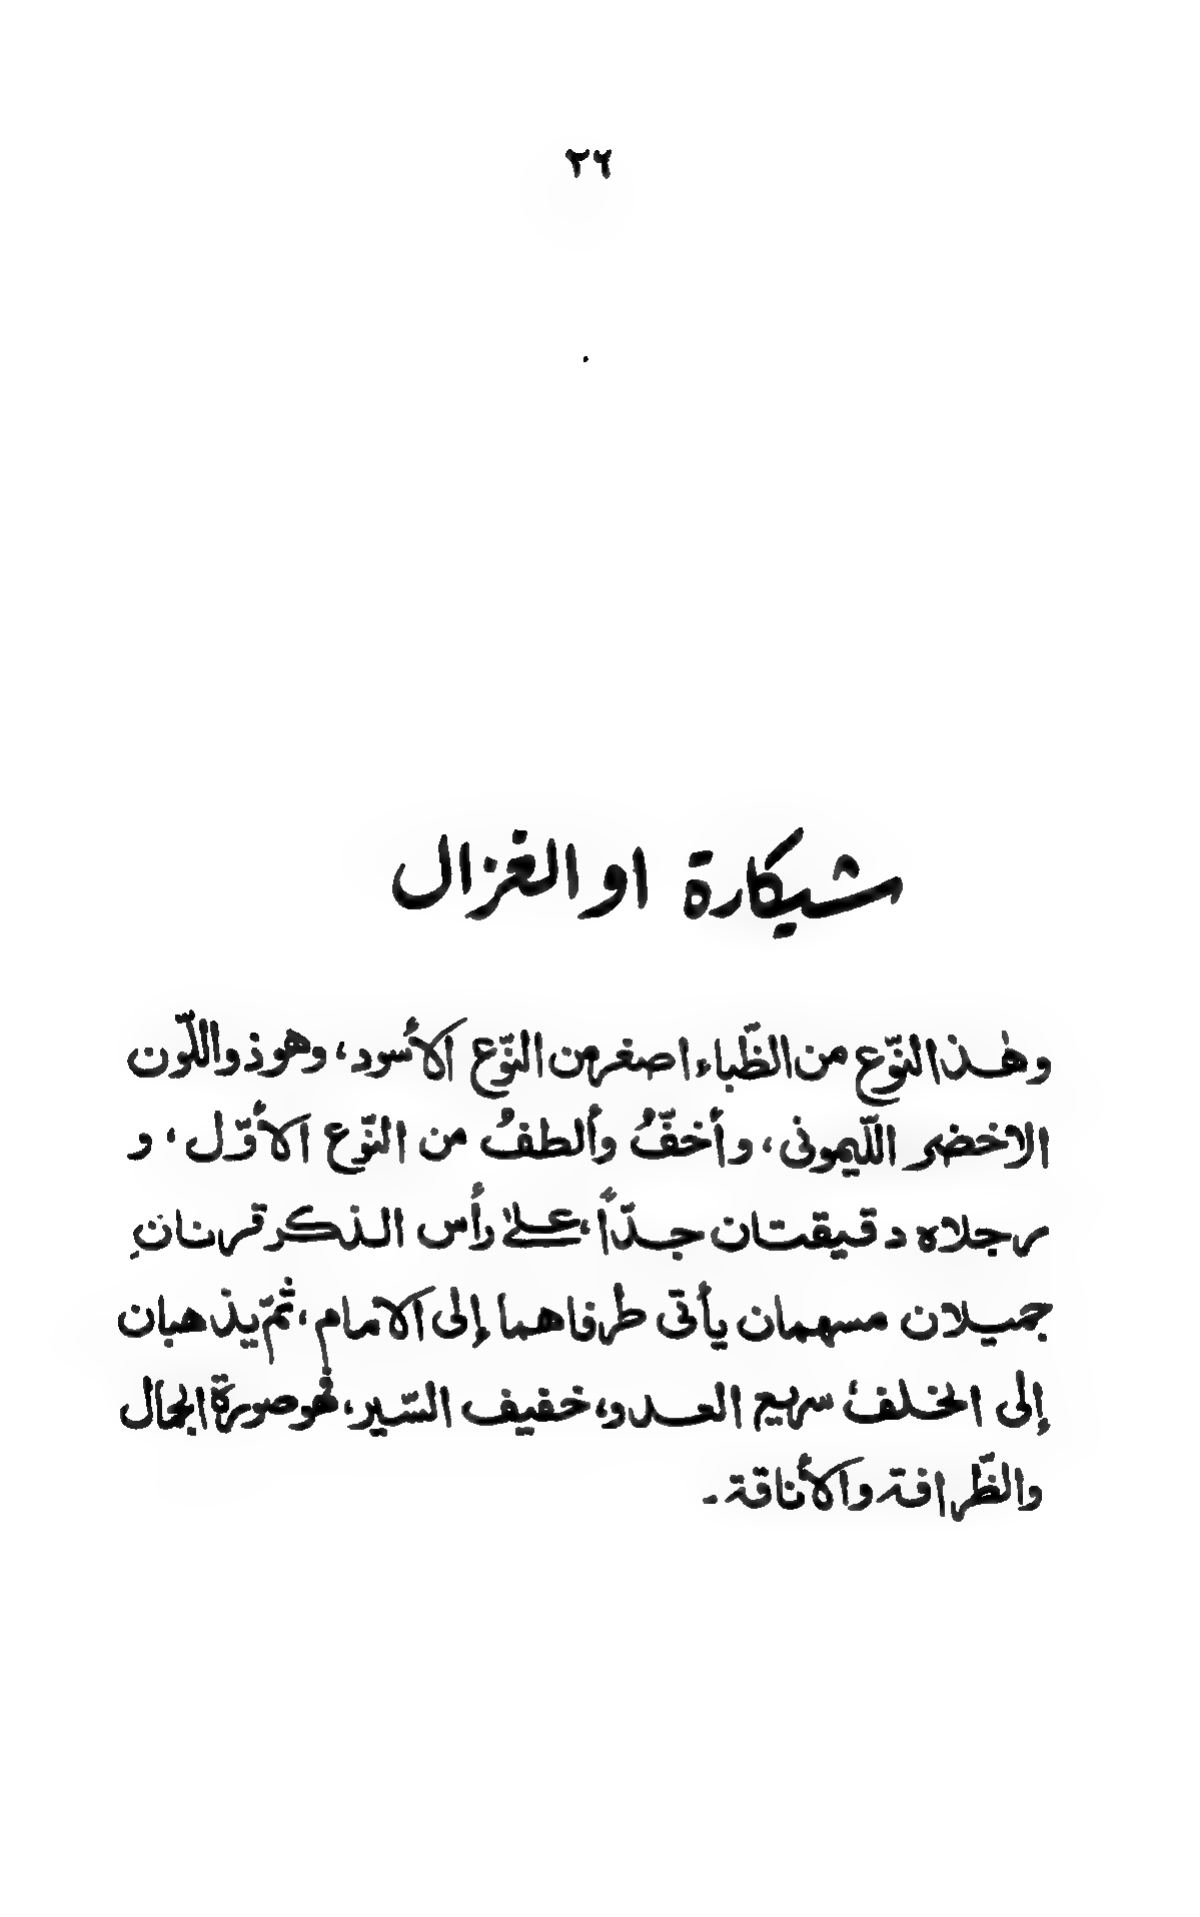 ٢٦
شيكارة او الغزال
وهٰذا النّوع من الظّباء اصغر من النّوع الأسود، وهو ذو اللّون
الاخضر اللّيمونى، وأخفّ وألطفُ من النّوع الأوّل، و
رجلاه دقيقتان جدّاً، على رأس الذكر قرنانِ
جميلان مسهمان يأتى طرفاهما إلى الامام، ثمّ يذهبان
إلى الخلف، سريع العدو، خفيف السّير، فهو صورة الجمال
والظّرافة والأناقة۔